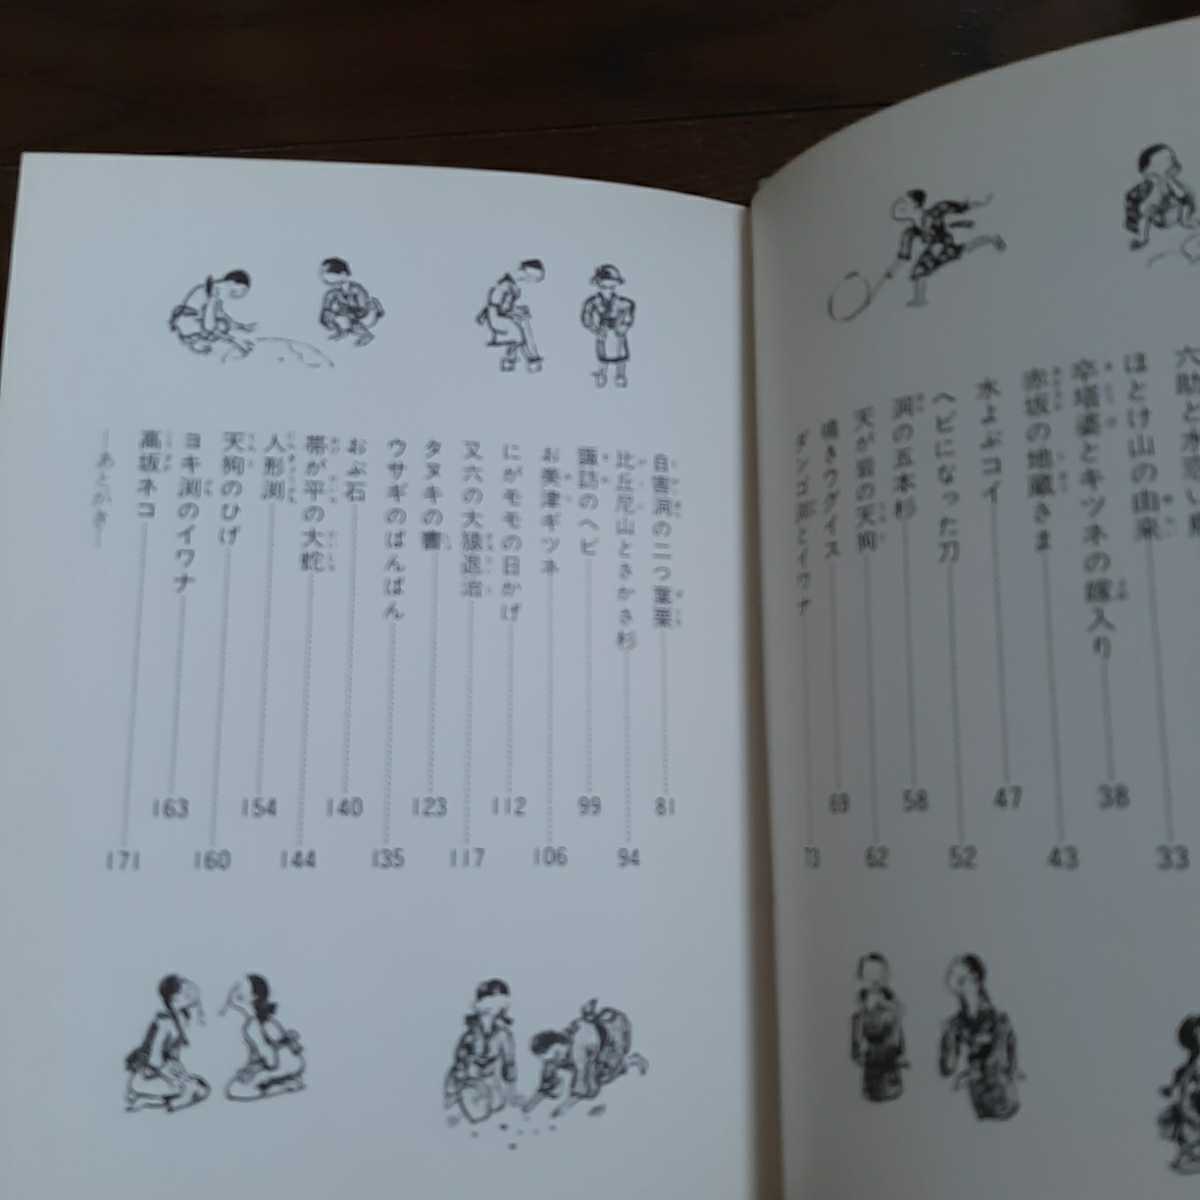 ほとけ山の由来 33
卒塔婆とキツネの嫁入り 38
赤坂の地蔵さま 43
水よぶコイ 47
ヘビになった刀 52
洞の五本杉 58
天が岩の天狗 62
鳴きウグイス 69
ダンゴ とイワナ 73
自害洞の二つ葉栗 81
比丘尼山とさかさ杉 94
諏訪のヘビ 99
お美津ギツネ 106
にがモモの日かげ 112
又六の大猿退治 117
タヌキの書 123
ウサギのばんばん 135
おぶ石 140
帯が平の大蛇 144
人形渕 154
天狗のひげ 160
ヨキ渕のイワナ 163
高坂ネコ 171
―あとがき―